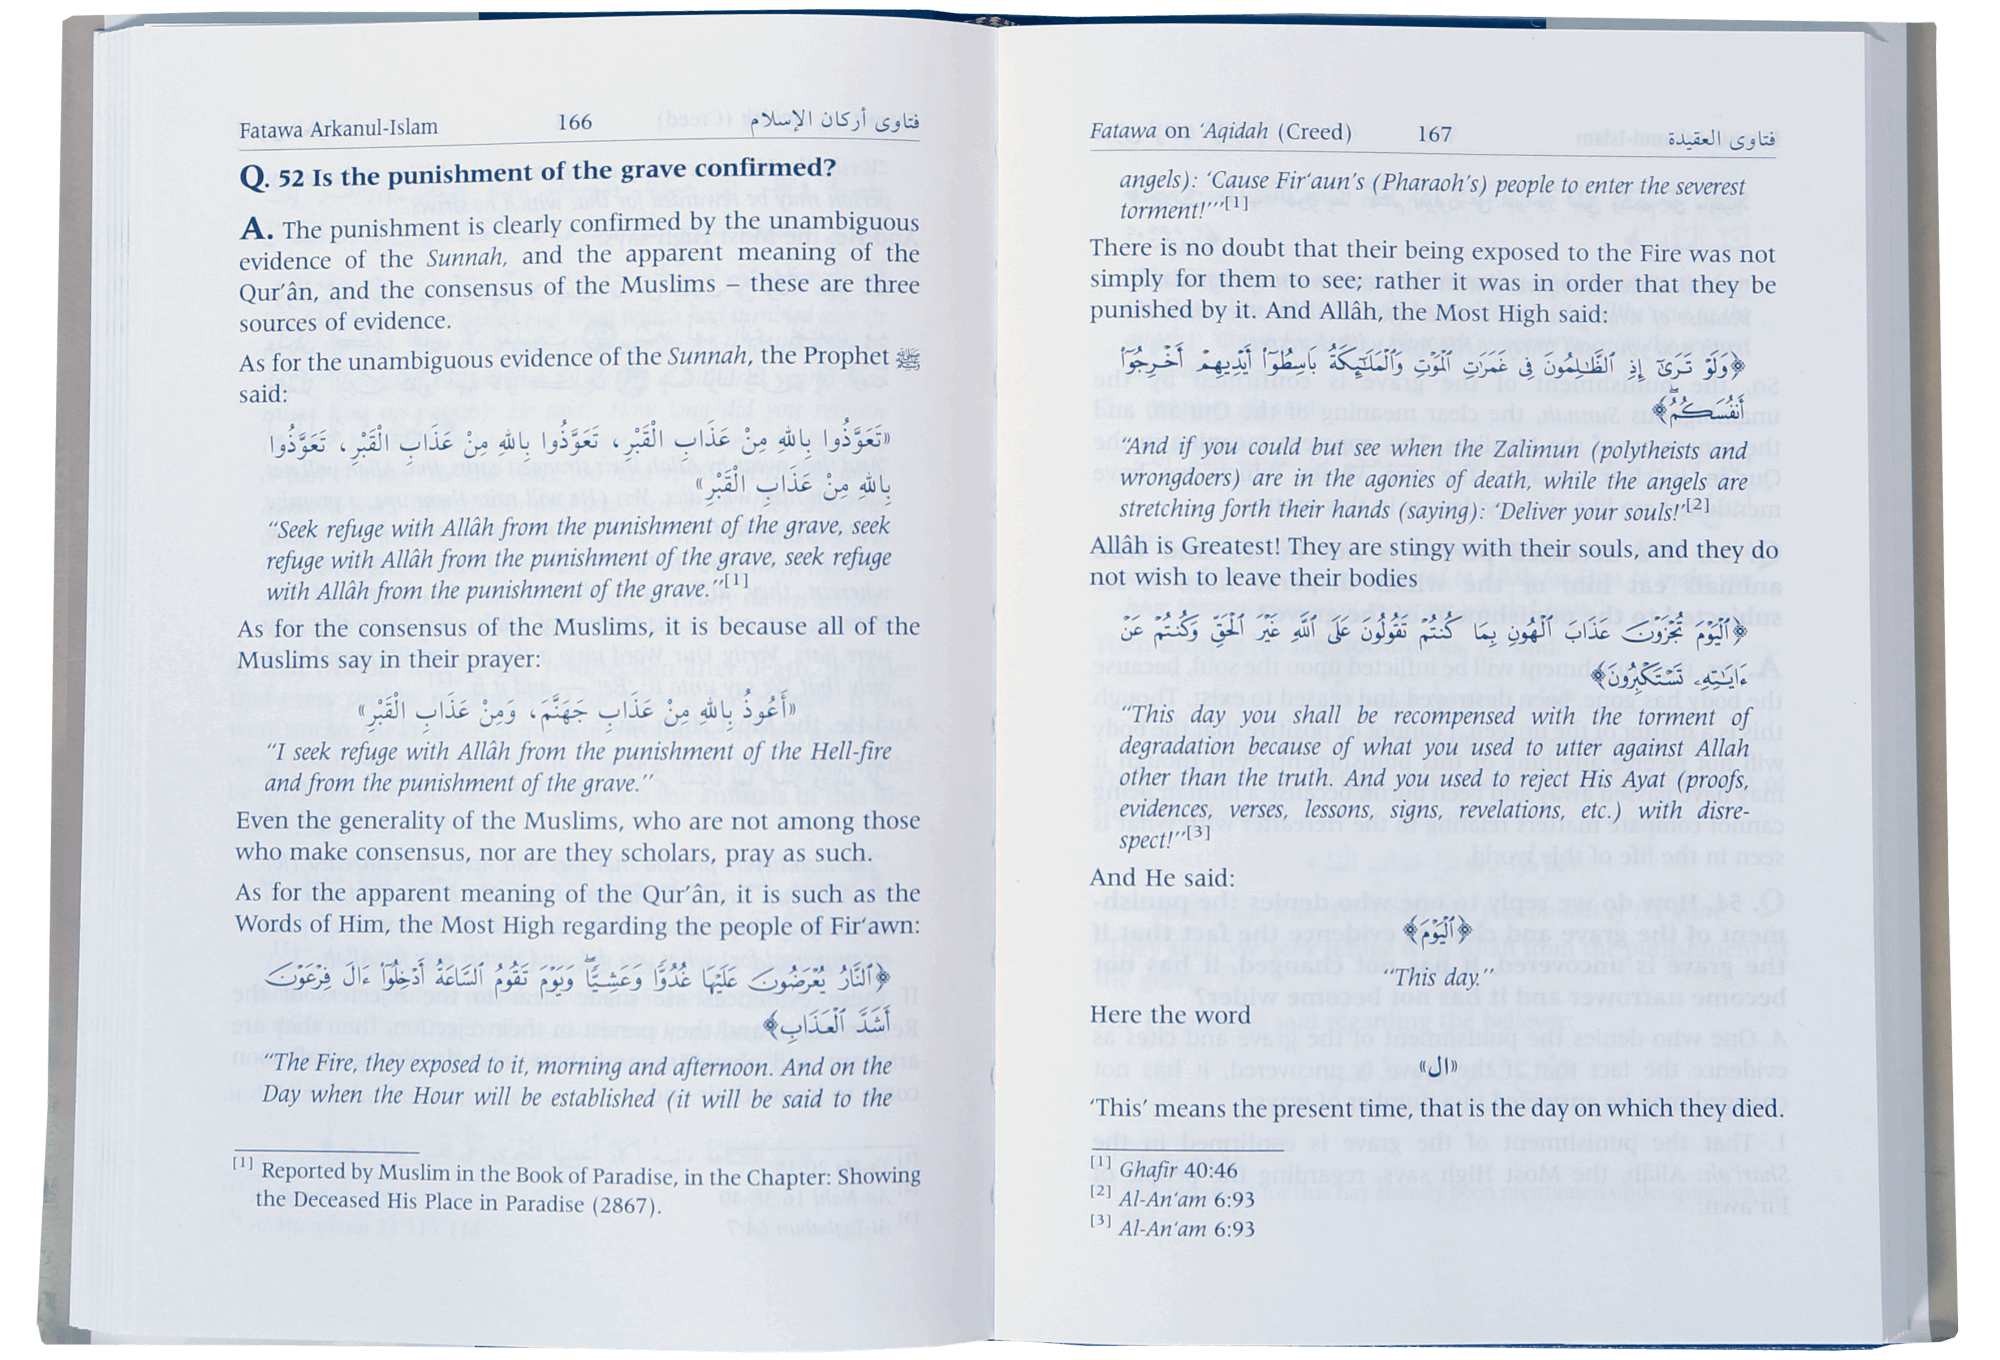 Fatawa Arkanul-Islam 166 فتاوى أركان الإسلام
Q. 52 Is the punishment of the grave confirmed?
A. The punishment is clearly confirmed by the unambiguous
evidence of the Sunnah, and the apparent meaning of the
Qur’ân, and the consensus of the Muslims – these are three
sources of evidence.
As for the unambiguous evidence of the Sunnah, the Prophet ﷺ
said:
«تَعَوَّذُوا بِاللهِ مِنْ عَذَابِ الْقَبْرِ، تَعَوَّذُوا بِاللهِ مِنْ عَذَابِ الْقَبْرِ، تَعَوَّذُوا
بِاللهِ مِنْ عَذَابِ الْقَبْرِ»
“Seek refuge with Allâh from the punishment of the grave, seek
refuge with Allâh from the punishment of the grave, seek refuge
with Allâh from the punishment of the grave.”[1]
As for the consensus of the Muslims, it is because all of the
Muslims say in their prayer:
«أَعُوذُ بِاللهِ مِنْ عَذَابِ جَهَنَّمَ، وَمِنْ عَذَابِ الْقَبْرِ»
“I seek refuge with Allâh from the punishment of the Hell-fire
and from the punishment of the grave.”
Even the generality of the Muslims, who are not among those
who make consensus, nor are they scholars, pray as such.
As for the apparent meaning of the Qur’ân, it is such as the
Words of Him, the Most High regarding the people of Fir‘awn:
﴿ٱلنَّارُ يُعْرَضُونَ عَلَيْهَا غُدُوًّا وَعَشِيًّاۖ وَيَوْمَ تَقُومُ ٱلسَّاعَةُ أَدْخِلُوٓا۟ ءَالَ فِرْعَوْنَ
أَشَدَّ ٱلْعَذَابِ﴾
“The Fire, they exposed to it, morning and afternoon. And on the
Day when the Hour will be established (it will be said to the
[1] Reported by Muslim in the Book of Paradise, in the Chapter: Showing
the Deceased His Place in Paradise (2867).
Fatawa on ‘Aqidah (Creed) 167 فتاوى العقيدة
angels): ‘Cause Fir‘aun’s (Pharaoh’s) people to enter the severest
torment!’”[1]
There is no doubt that their being exposed to the Fire was not
simply for them to see; rather it was in order that they be
punished by it. And Allâh, the Most High said:
﴿وَلَوْ تَرَىٰٓ إِذِ ٱلظَّٰلِمُونَ فِى غَمَرَٰتِ ٱلْمَوْتِ وَٱلْمَلَٰٓئِكَةُ بَاسِطُوٓا۟ أَيْدِيهِمْ أَخْرِجُوٓا۟
أَنفُسَكُمُۖ﴾
“And if you could but see when the Zalimun (polytheists and
wrongdoers) are in the agonies of death, while the angels are
stretching forth their hands (saying): ‘Deliver your souls!’[2]
Allâh is Greatest! They are stingy with their souls, and they do
not wish to leave their bodies
﴿ٱلْيَوْمَ تُجْزَوْنَ عَذَابَ ٱلْهُونِ بِمَا كُنتُمْ تَقُولُونَ عَلَى ٱللَّهِ غَيْرَ ٱلْحَقِّ وَكُنتُمْ عَنْ
ءَايَٰتِهِۦ تَسْتَكْبِرُونَ﴾
“This day you shall be recompensed with the torment of
degradation because of what you used to utter against Allah
other than the truth. And you used to reject His Ayat (proofs,
evidences, verses, lessons, signs, revelations, etc.) with disre-
spect!’”[3]
And He said:
﴿ٱلْيَوْمَ﴾
“This day.”
Here the word
«ال»
‘This’ means the present time, that is the day on which they died.
[1] Ghafir 40:46
[2] Al-An‘am 6:93
[3] Al-An‘am 6:93